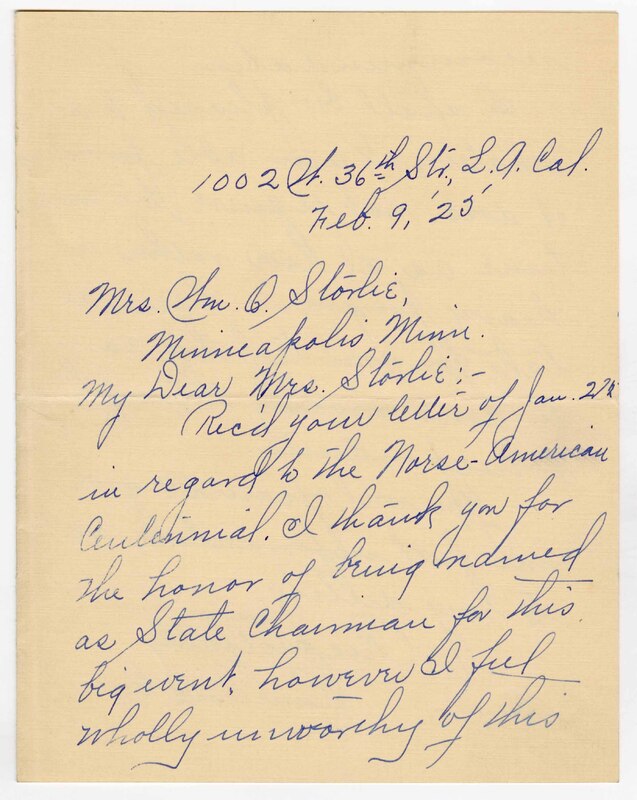 1002 W. 36th Str., L.A. Cal.
Feb. 9, '25
Mrs. Wm. O. Storlie,
Minneapolis Minn.
My Dear Mrs. Storlie:-
Rec'd your letter of Jan. 27th
in regard to the Norse-American
Centennial. I thank you for
the honor of being named
as State Chairman for this
big event, however I feel
wholly unworthy of this